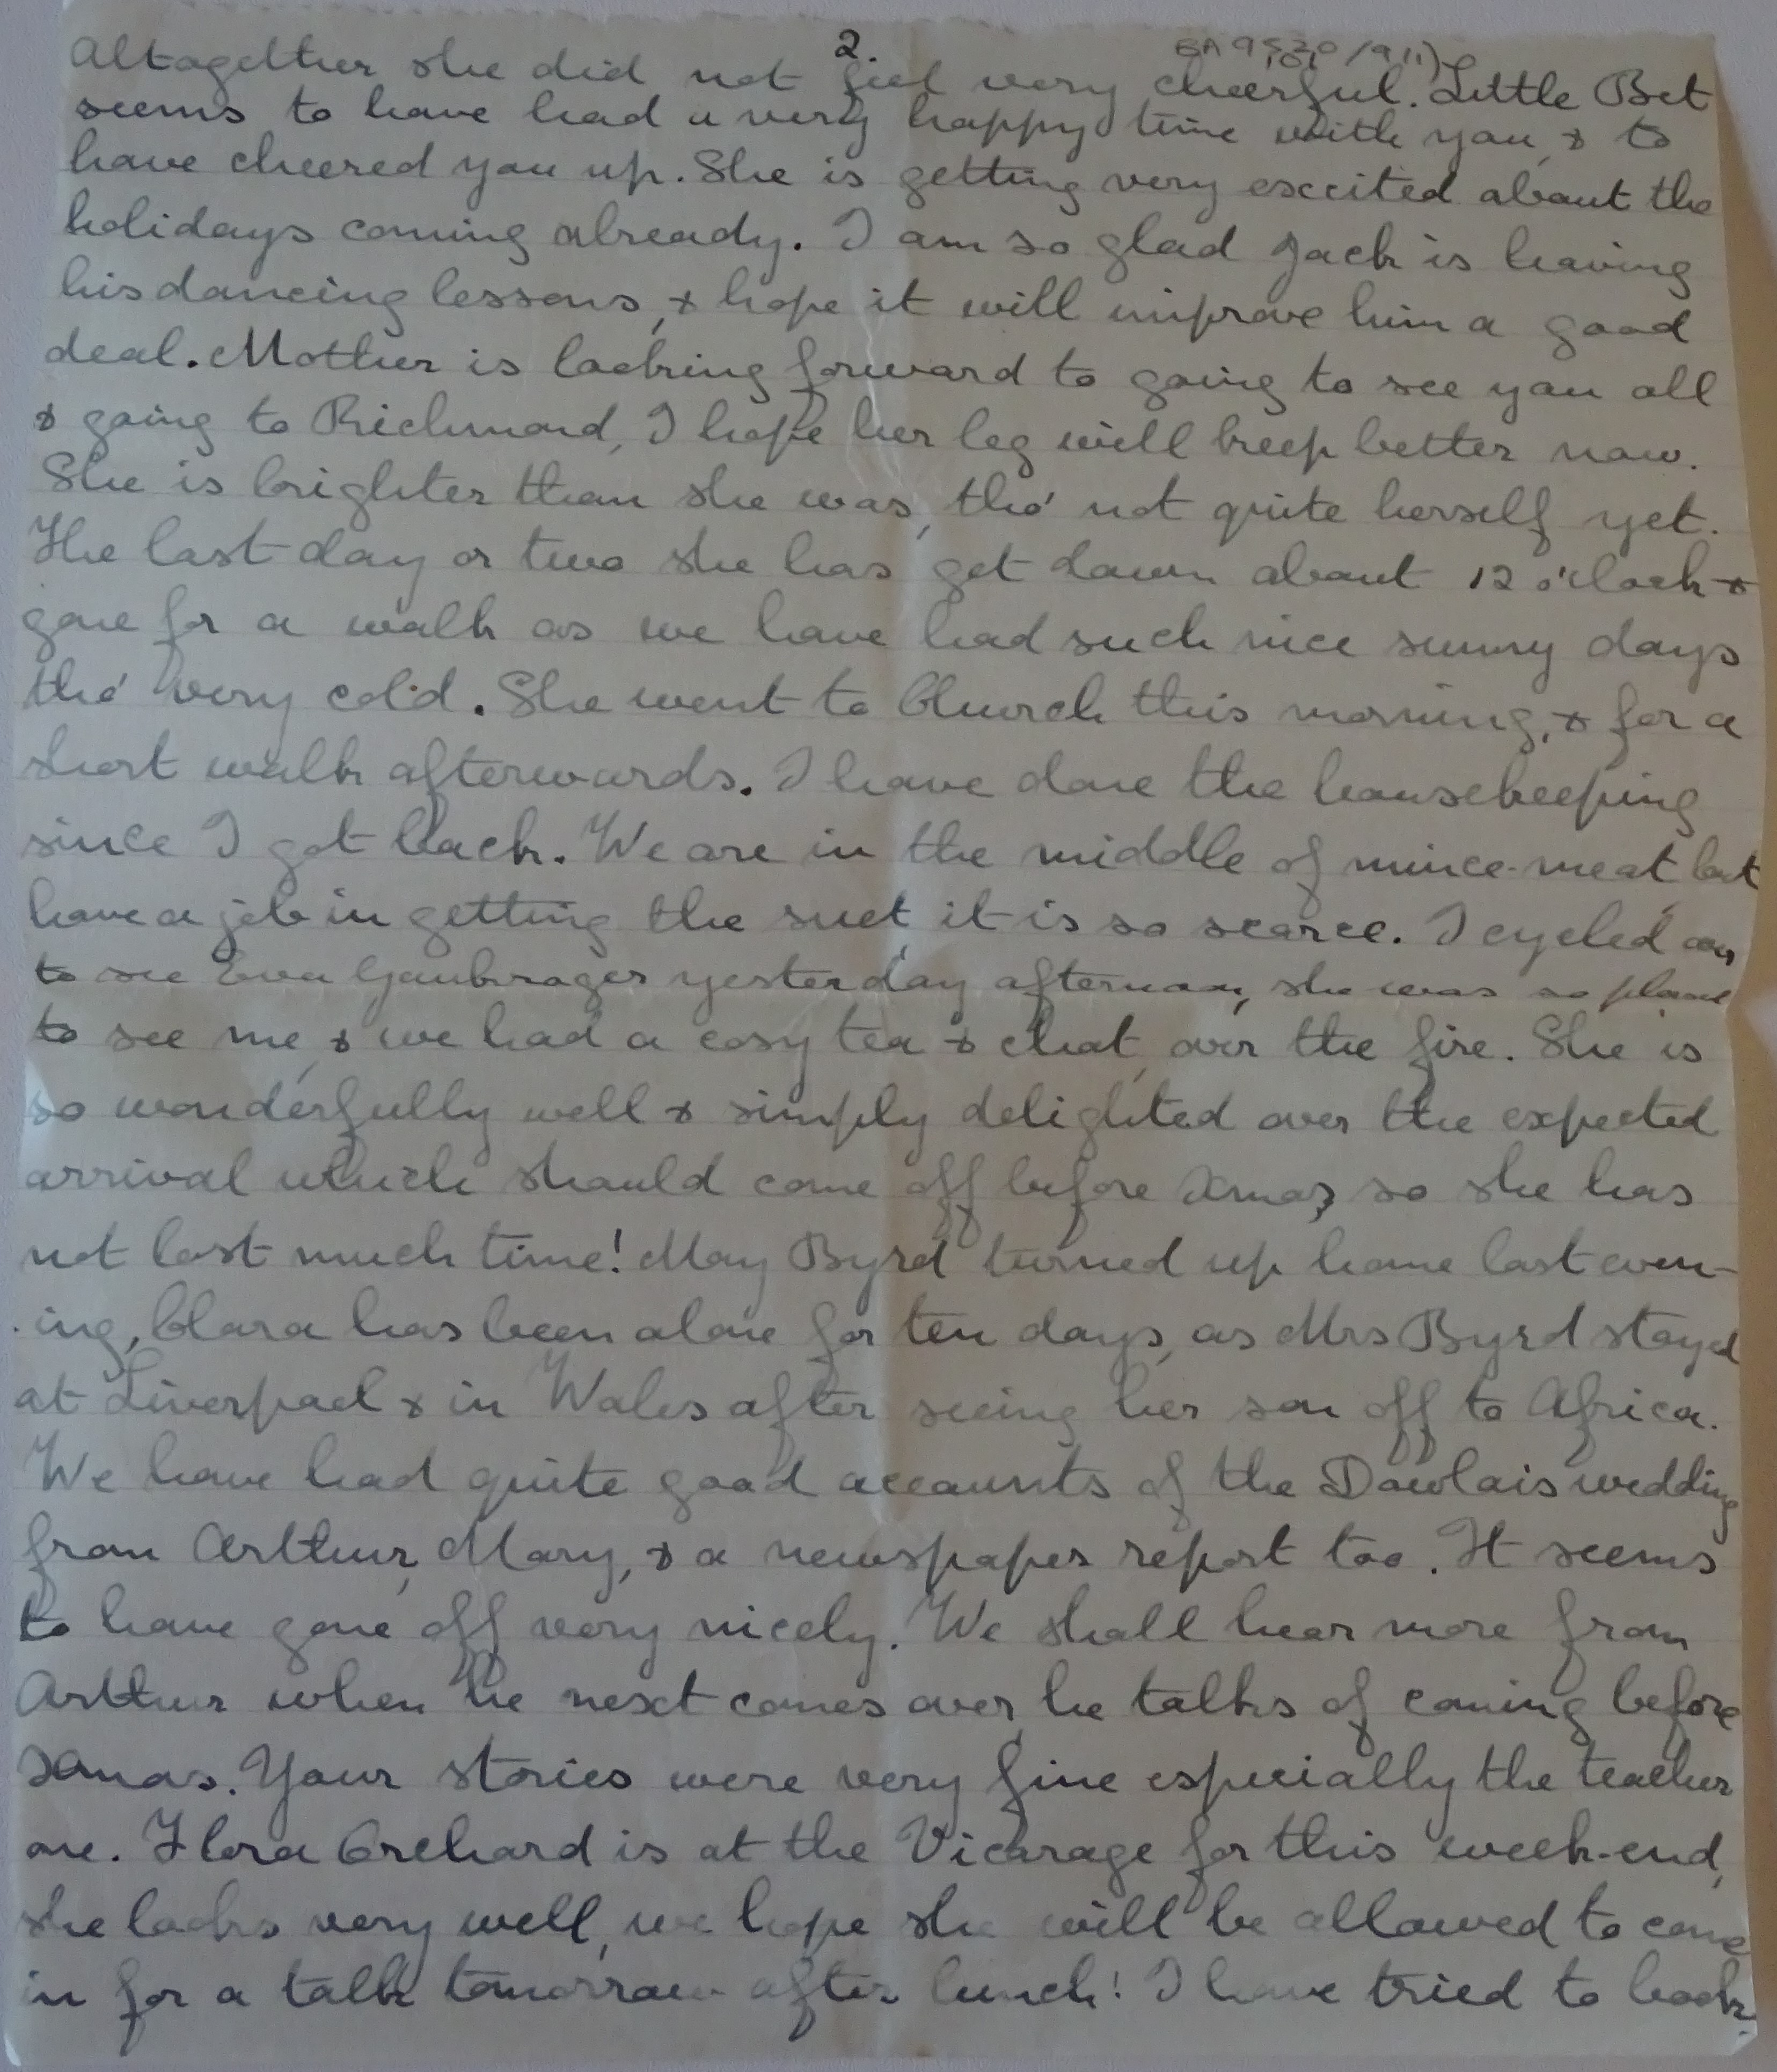 2.
Altogether she did not feel very cheerful. Little Bet
seems to have had a very happy time with you, & to
have cheered you up. She is getting very excited about the
holidays coming already. I am so glad Jack is having
his dancing lessons, & hope it will improve him a good
deal. Mother is looking forward to going to see you all
& going to Richmond, I hope her leg will keep better now.
She is brighter than she was, tho' not quite herself yet.
The last day or two she has got down about 12 o'clock &
gone for a walk as we have had such nice sunny days
tho' very cold. She went to Church this morning, & for a
short walk afterwards. I have done the housekeeping
since I got back. We are in the middle of mince-meat, but
have a job in getting the suet, it is so scarce. I cycled over
to see Eva yesterday afternoon, she was so
to see me, & we had a cosy tea & chat, over the fire. She is
so wonderfully well & simply delighted over the expected
arrival which should come off before Xmas, so she has
not lost much time! May Byrd turned up home last even-
-ing, Clara has been alone for ten days, as Mrs Byrd stayed
at Liverpool & in Wales after seeing her son off to Africa.
We have had quite good accounts of the Dowlais wedding
from Arthur, Mary, & a newspaper report too. It seems
to have gone off very nicely. We shall hear more from
Arthur when he next comes over, he talks of coming before
Xmas. Your stories were very fine especially the teacher
one. Flora Orchard is at the Vicarage for this week-end,
she looks very well, we hope she will be allowed to come
in for a talk tomorrow after lunch! I have tried to book